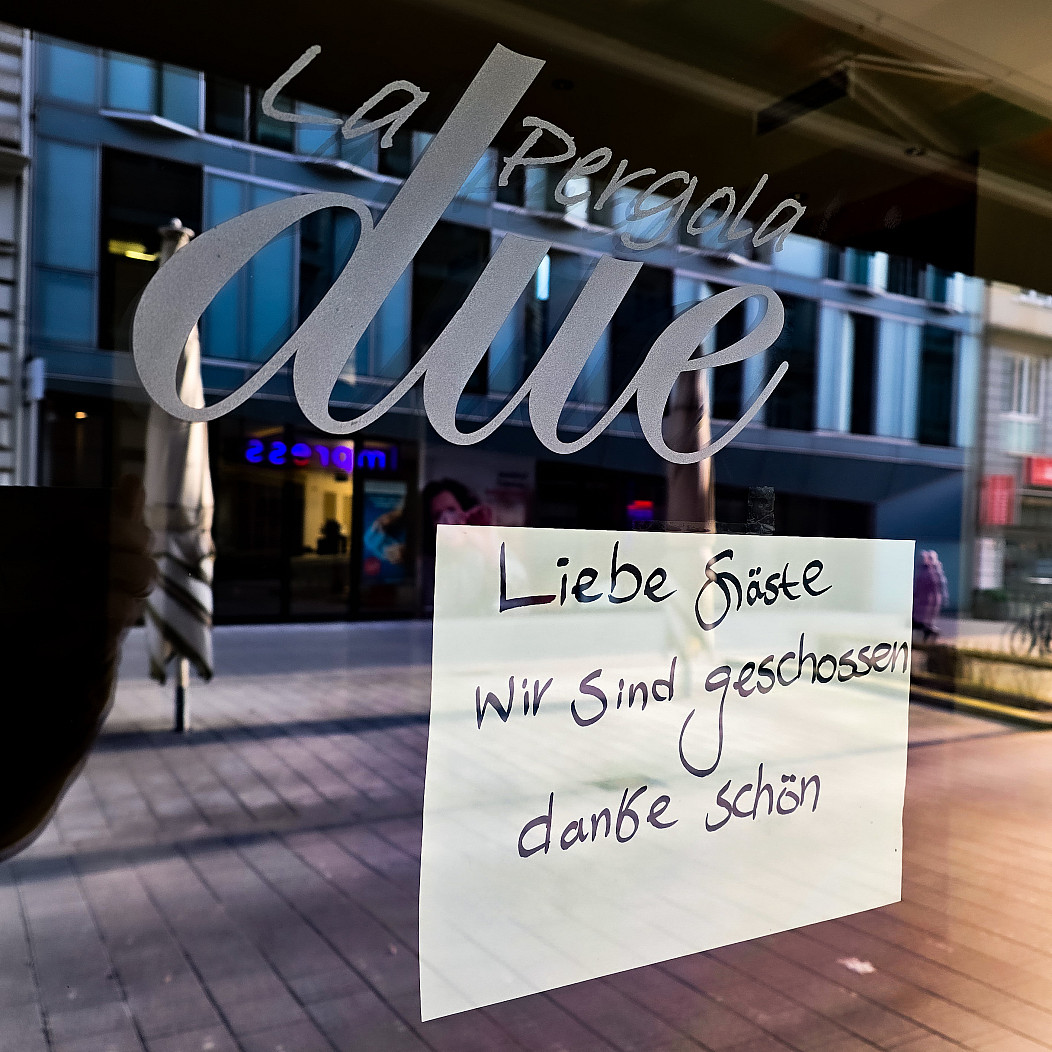 La Pergola
due
impress
Liebe Gäste
Wir sind geschossen
danke schön